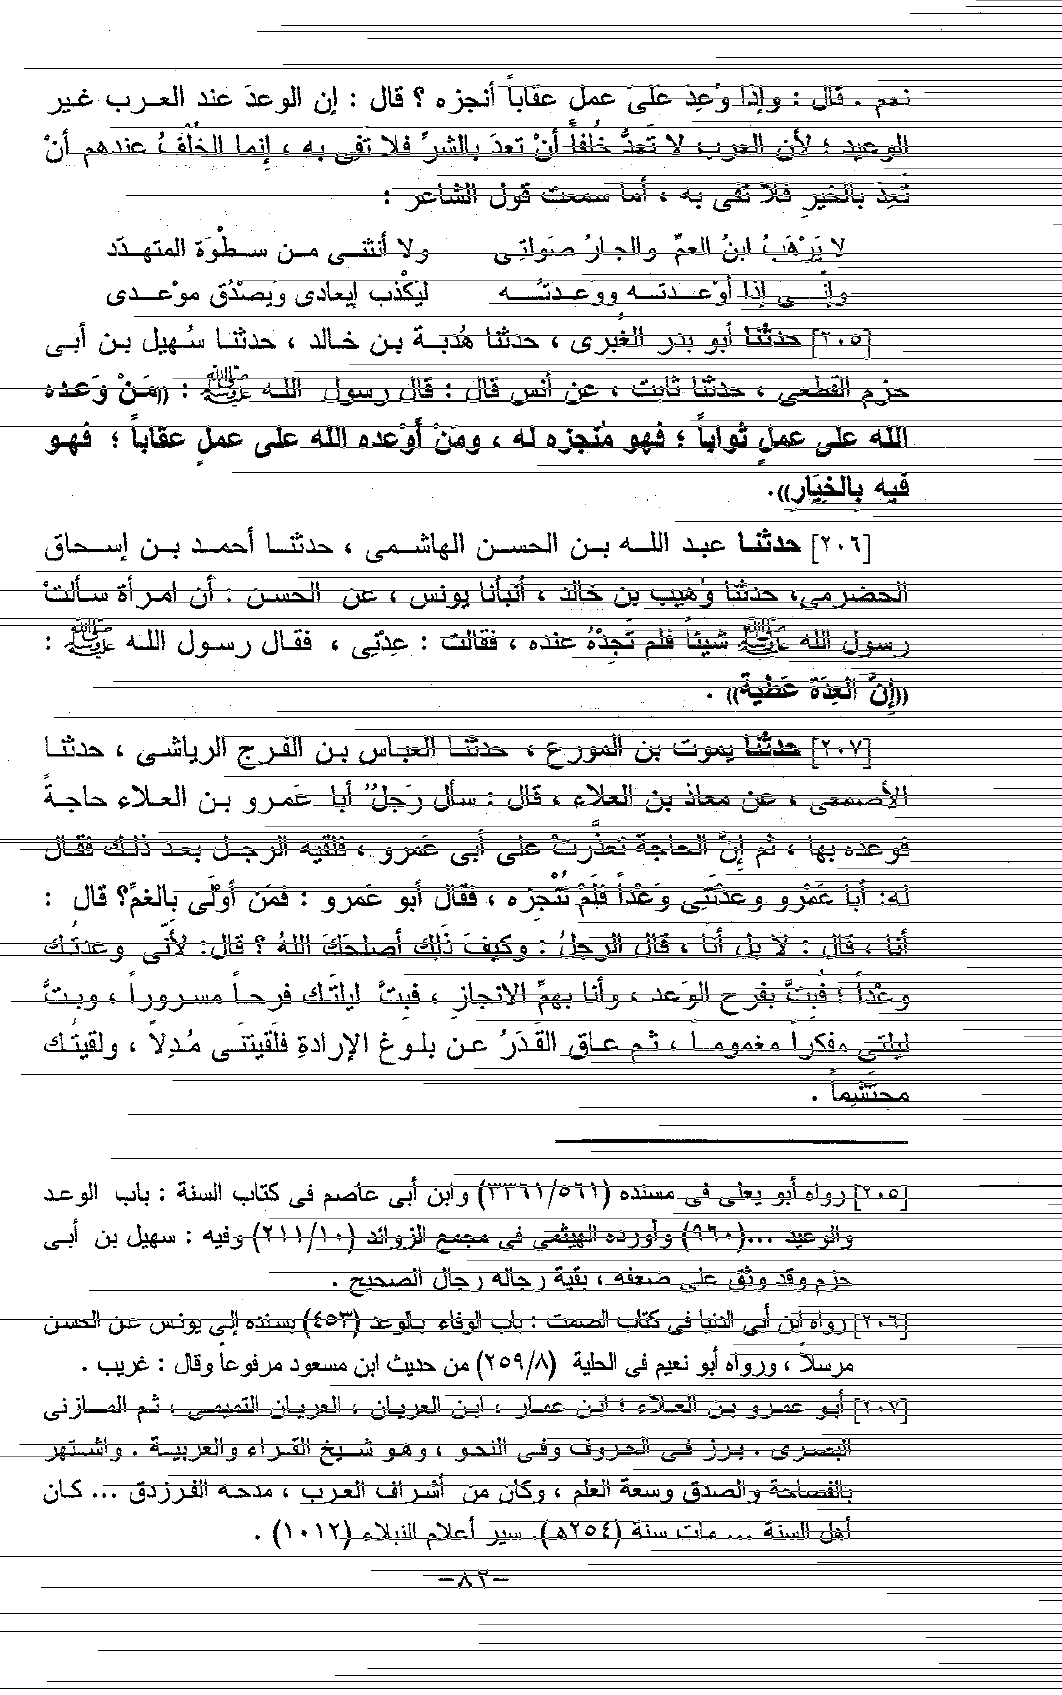 نعم . قال : وإذا وُعِدَ عَلَى عمل عقاباً أنجزه ؟ قال : إن الوعدَ عند العرب غير
الوعيد ؛ لأن العرب لا تَعدُّ خُلفاً أنْ تعدَ بالشرِّ فلا تفى به ، إنما الخُلْفُ عندهم أنْ
تَعِدَ بالخير فلا تفى به ، أما سمعت قول الشاعر :
لا يَرْهَبُ ابنُ العمِّ والجارُ صَولتِى ولا أنثنى من سطْوَة المتهدّد
وإنِّى إذا أوْعدته ووَعدتُه ليكْذب إيعادى وَيَصْدُق موْعدى
[٢٠٥] حدثنا أبو بدر الغُبرى ، حدثنا هُدْبة بن خالد ، حدثنا سُهيل بن أبى
حزم القطعى ، حدثنا ثابت ، عن أنس قال : قال رسول الله ﷺ : ((مَنْ وَعده
الله على عملٍ ثواباً ؛ فهو مُنْجزه له ، ومَنْ أَوْعده الله على عملٍ عقاباً ؛ فهو
فيه بالخيَار)).
[٢٠٦] حدثنا عبد الله بن الحسن الهاشمى ، حدثنا أحمد بن إسحاق
الحضرمى، حدثنا وُهيب بن خالد ، أنبأنا يونس ، عن الحسن : أن امرأة سألتْ
رسول الله ﷺ شيئاً فلم تَجِدْهُ عنده ، فقالت : عِدْنِى ، فقال رسول الله ﷺ :
((إنَّ العِدَة عَطِية)) .
[٢٠٧] حدثنا يموت بن المورع ، حدثنا العباس بن الفرج الرياشى ، حدثنا
الأصمعى ، عن معاذ بن العلاء ، قال : سأل رَجلٌ أبا عَمرو بن العلاء حاجةً
فوعده بها ، ثم إنَّ الحاجةَ تعذَّرتْ على أبى عَمرو ، فلقيه الرجل بعد ذلك فقال
له: أبا عَمْرو وعدْتَنِى وَعْداً فَلَمْ تُنْجِزه ، فقال أبو عَمرو : فمَن أوْلَى بالغمِّ؟ قال :
أنا ، قال : لا بل أنا ، قال الرجلُ : وكيفَ ذَلِك أصلحَكَ اللهُ ؟ قال: لأنِّى وعدتُك
وعْداً ؛ فَبُتَّ بفرح الوَعد ، وأنا بهمِّ الانجاز ، فبتَّ ليلتَك فرحاً مسروراً ، وبتُّ
ليلتى مفكراً مغموماً ، ثم عاق القَدَرُ عن بلوغ الإرادةِ فلَقيتَنى مُدِلاً ، ولقيتُك
محتَشِماً .
[٢٠٥] رواه أبو يعلى فى مسنده (٣٣٦١/٥٦١) وابن أبى عاصم فى كتاب السنة : باب الوعد
والوعيد ...(٩٦٠) وأورده الهيثمى فى مجمع الزوائد (٢١١/١٠) وفيه : سهيل بن أبى
حزم وقد وثق على ضعفه ، بقية رجاله رجال الصحيح .
[٢٠٦] رواه ابن أبى الدنيا فى كتاب الصمت : باب الوفاء بالوعد (٤٥٣) بسنده إلى يونس عن الحسن
مرسلاً ، ورواه أبو نعيم فى الحلية (٢٥٩/٨) من حديث ابن مسعود مرفوعاً وقال : غريب .
[٢٠٧] أبو عمرو بن العلاء ؛ ابن عمار ، ابن العريان ، العريان التميمى ، ثم المازنى
البصرى . برز فى الحروف وفى النحو ، وهو شيخ القراء والعربية . واشتهر
بالفصاحة والصدق وسعة العلم ، وكان من أشراف العرب ، مدحه الفرزدق ... كان
أهل السنة ... مات سنة (٢٥٤هـ). سير أعلام النبلاء (١٠١٢) .
-٨٢-